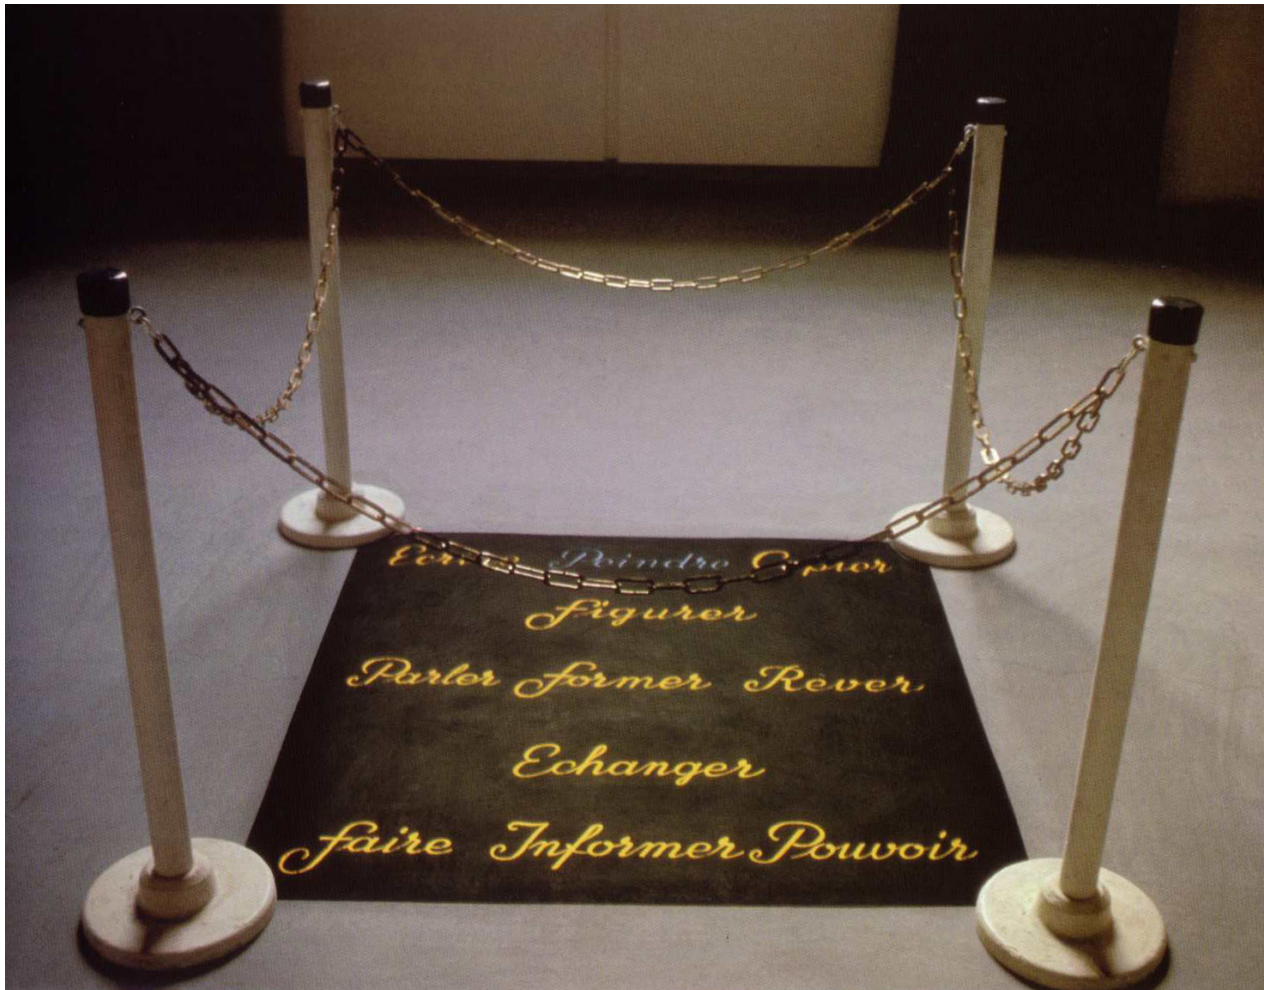 Peindre Copier
Figurer
Parler Former Rêver
Echanger
Faire Informer Pouvoir